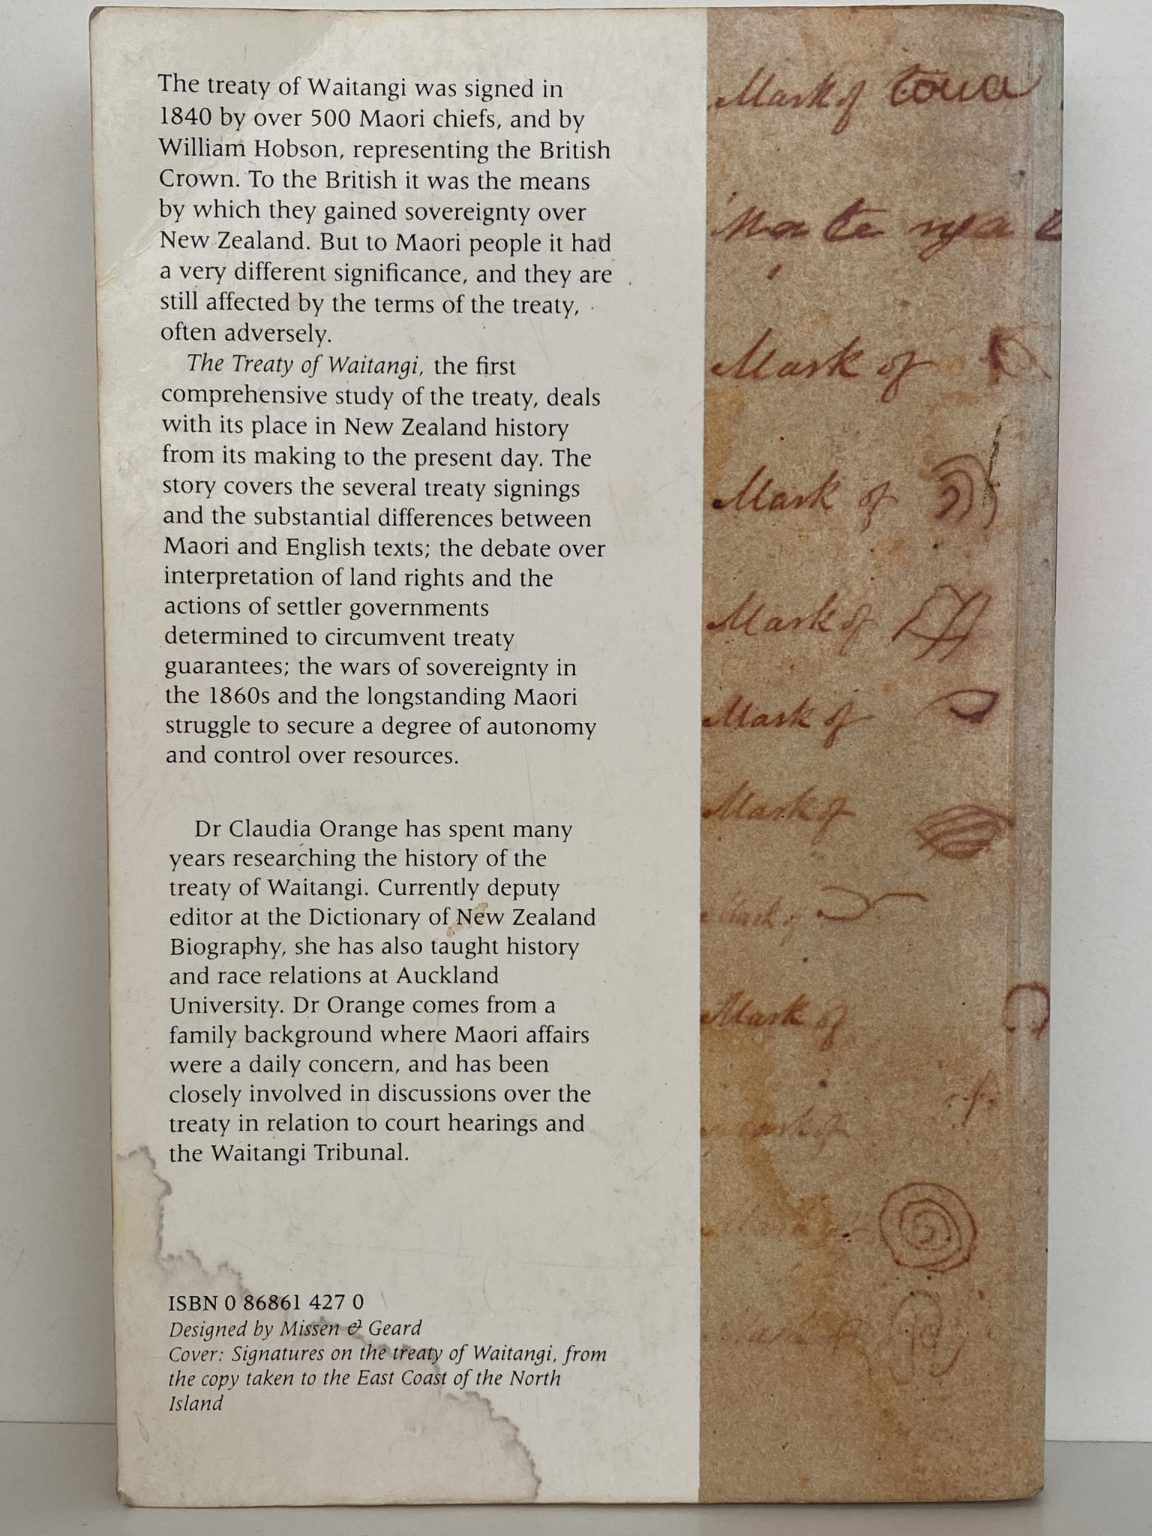 The treaty of Waitangi was signed in
1840 by over 500 Maori chiefs, and by
William Hobson, representing the British
Crown. To the British it was the means
by which they gained sovereignty over
New Zealand. But to Maori people it had
a very different significance, and they are
still affected by the terms of the treaty,
often adversely.
The Treaty of Waitangi, the first
comprehensive study of the treaty, deals
with its place in New Zealand history
from its making to the present day. The
story covers the several treaty signings
and the substantial differences between
Maori and English texts; the debate over
interpretation of land rights and the
actions of settler governments
determined to circumvent treaty
guarantees; the wars of sovereignty in
the 1860s and the longstanding Maori
struggle to secure a degree of autonomy
and control over resources.
Dr Claudia Orange has spent many
years researching the history of the
treaty of Waitangi. Currently deputy
editor at the Dictionary of New Zealand
Biography, she has also taught history
and race relations at Auckland
University. Dr Orange comes from a
family background where Maori affairs
were a daily concern, and has been
closely involved in discussions over the
treaty in relation to court hearings and
the Waitangi Tribunal.
ISBN 0 86861 427 0
Designed by Missen & Geard
Cover: Signatures on the treaty of Waitangi, from
the copy taken to the East Coast of the North
Island
Mark of
Mark of
Mark of
Mark of
Mark of
Mark of
Mark of
Mark of